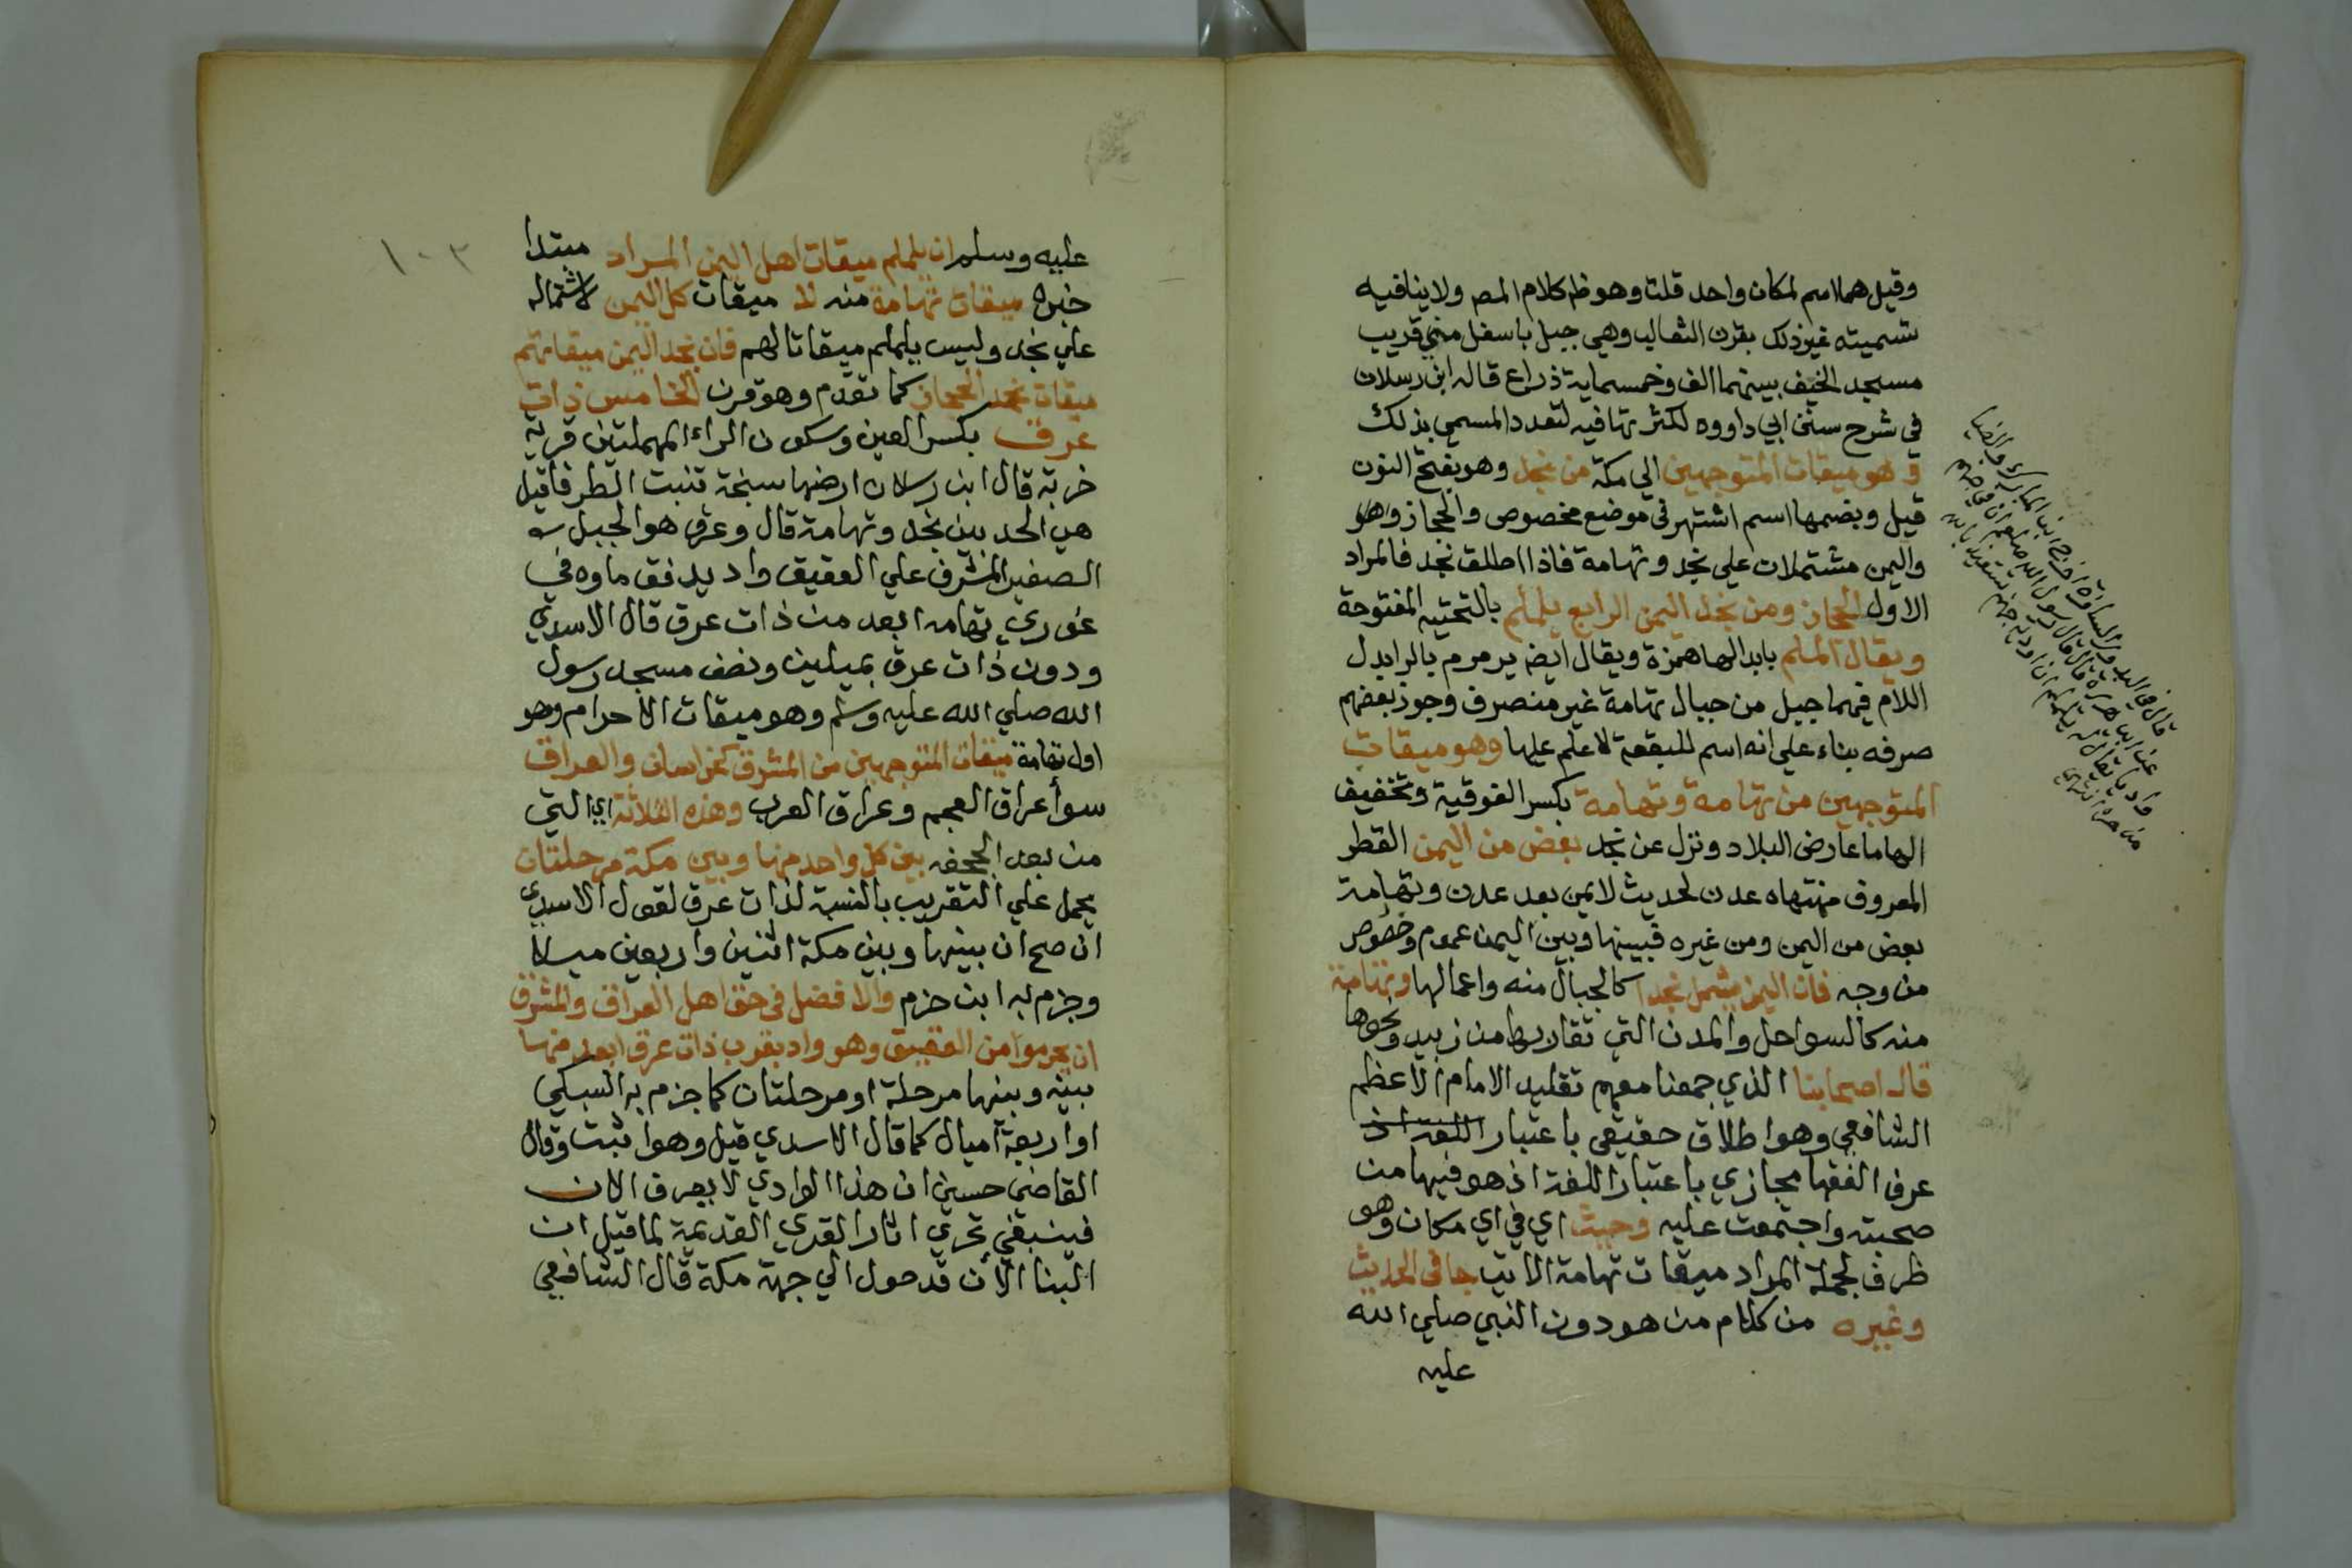 وقيل هما اسم لمكان واحد قلت وهو ظ كلام المص ولا ينافيه
تسميته غير ذلك بقرن الثعالب وهي جبل باسفل مني قريب
مسجد الخيف بينهما الف وخمسماية ذراع قاله ابن رسلان
في شرح سنن ابي داووه لكثرتها فيه لتعدد المسمي بذلك
وهو ميقات المتوجهين الي مكة من نجد وهو بفتح النون
قيل وبضمها اسم اشتهر في موضع مخصوص والحجاز وهو
واليمن مشتملان علي نجد وتهامة فاذا اطلق نجد فالمراد
الاول الحجاز ومن نجد اليمن الرابع يلملم بالتحتيه المفتوحة
ويقال الملم بابدالها همزة ويقال ايضه يرمرم بالرا بدل
اللام فيهما جبل من جبال تهامة غير منصرف وجوز بعضهم
صرفه بناء علي انه اسم للبقعة لا علم عليها وهو ميقات
المتوجهين من تهامة وتهامة بكسر الفوقية وتخفيف
الها ما عارض البلاد ونزل عن نجد بعض من اليمن القطر
المعروف منتهاه عدن لحديث لا يمن بعد عدن وتهامة
بعض من اليمن ومن غيره فبينها وبين اليمن عموم وخصوص
من وجه فان اليمن يشمل نجدا كالجبال منه واعمالها وتهامة
منه كالسواحل والمدن التي تقاربها من زبيد ونحوها
قال اصحابنا الذي جمعنا معهم تقليد الامام الاعظم
الشافعي وهو اطلاق حقيقي باعتبار اللغة اذ
عرف الفقها مجازي باعتبار اللغة اذ هو فيها من
صحبته واجتمعت عليه وحيث اي في اي مكان وهو
ظرف لجملة المراد ميقات تهامة الاتيه جا في الحديث
وغيره من كلام من هو دون النبي صلي الله
عليه
قال في البدور السافرة اخرج ابن المبارك
عن ابي هريرة قال قال رسول الله صلعم ان في جهنم
واديا يقال له يلملم ان اودية جهنم تستعيذ بالله
من حره انتهي
١٠٣
عليه وسلم ان يلملم ميقات اهل اليمن المراد مبتدا
خبره ميقات تهامة منه لا ميقات كل اليمن لاشتماله
علي نجد وليس يلملم ميقاتا لهم فان نجد اليمن ميقاتهم
ميقات نجد الحجاز كما تقدم وهو قرن الخامس ذات
عرق بكسر العين وسكون الراء المهملتين قرية
خربة قال ابن رسلان ارضها سبخة تنبت الطرفا قيل
هي الحد بين نجد وتهامة قال وعرق هو الجبل
الصغير المشرف علي العقيق واد يدفق ماوه في
غوري تهامه ابعد من ذات عرق قال الاسدي
ودون ذات عرق بميلين ونصف مسجد رسول
الله صلي الله عليه وسلم وهو ميقات الاحرام وهو
اول تهامة ميقات المتوجهين من المشرق كخراسان والعراق
سوا عراق العجم وعراق العرب وهذه الثلاثة اي التي
من بعد الجحفه بين كل واحد منها وبين مكة مرحلتان
يحمل علي التقريب بالنسبة لذات عرق لقول الاسدي
ان صح ان بينها وبين مكة اثنين واربعين ميلا
وجزم به ابن حزم والافضل في حق اهل العراق والمشرق
ان يحرموا من العقيق وهو واد بقرب ذات عرق ابعد منها
بينه وبينها مرحلة او مرحلتان كما جزم به السبكي
او اربعة اميال كما قال الاسدي قيل وهو اثبت وقال
القاضي حسين ان هذا الوادي لا يعرف الان
فينبغي تحري اثار القري القديمة لما قيل ان
البنا الان قد حول الي جهة مكة قال الشافعي